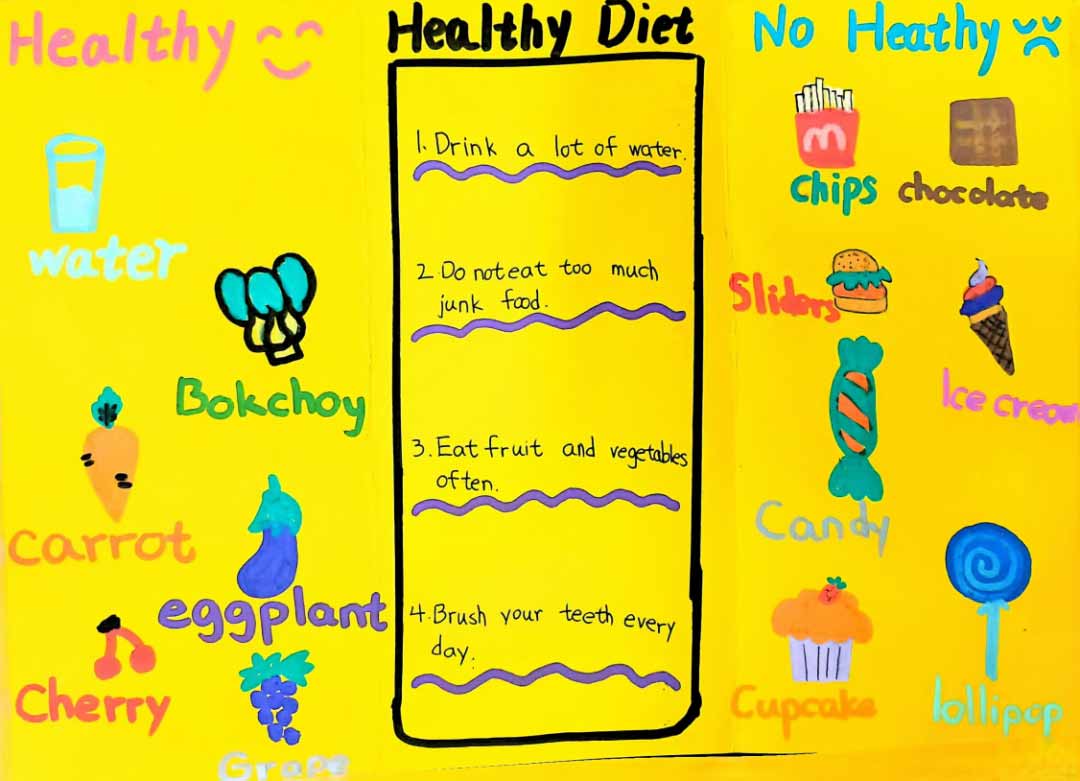 Healthy
water
Bokchoy
Carrot
eggplant
Cherry
Grape
Healthy Diet
1. Drink a lot of water.
2. Do not eat too much
junk food.
3. Eat fruit and vegetables
often.
4. Brush your teeth every
day.
No Heathy
m
chips
chocolate
Sliders
Ice cream
Candy
Cupcake
lollipop